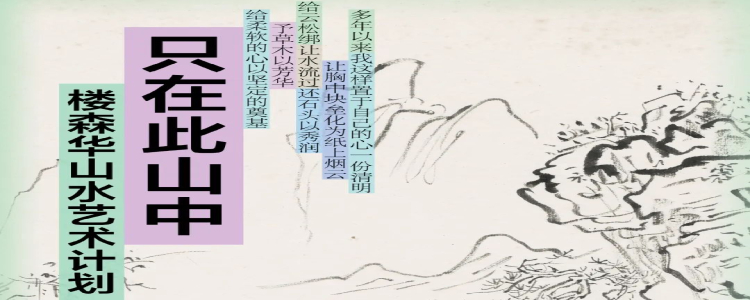 多年以来我这样置于自己的心一份清明
让胸中块垒化为纸上烟云
给云松绑让水流过还石头以秀润
予草木以芳华
给柔软的心以坚定的奠基
只在此山中
楼森华山水艺术计划